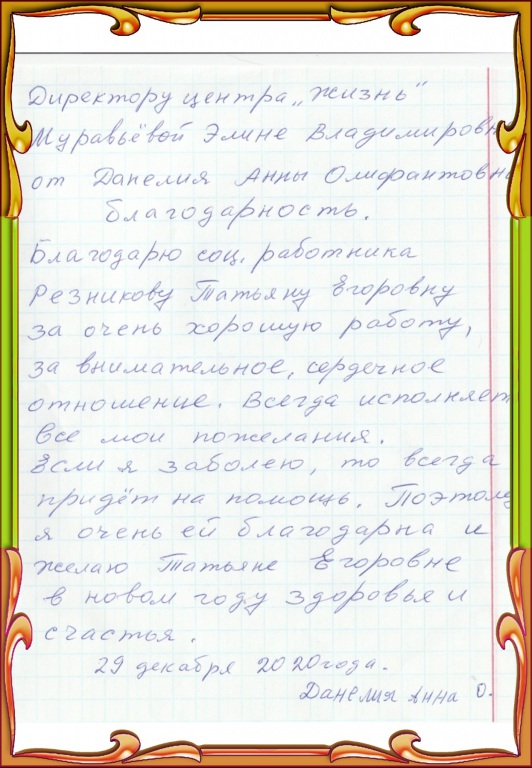 Директору центра „Жизнь"
Муравьёвой Элине Владимировн
от Данелия Анны Олифантовны
благодарность.
Благодарю соц. работника
Резникову Татьяну Егоровну
за очень хорошую работу,
за внимательное, сердечное
отношение. Всегда исполняет
все мои пожелания.
Если я заболею, то всегда
придёт на помощь. Поэтому
я очень ей благодарна и
желаю Татьяне Егоровне
в новом году здоровья и
счастья.
29 декабря 2020 года.
Данелия Анна О.